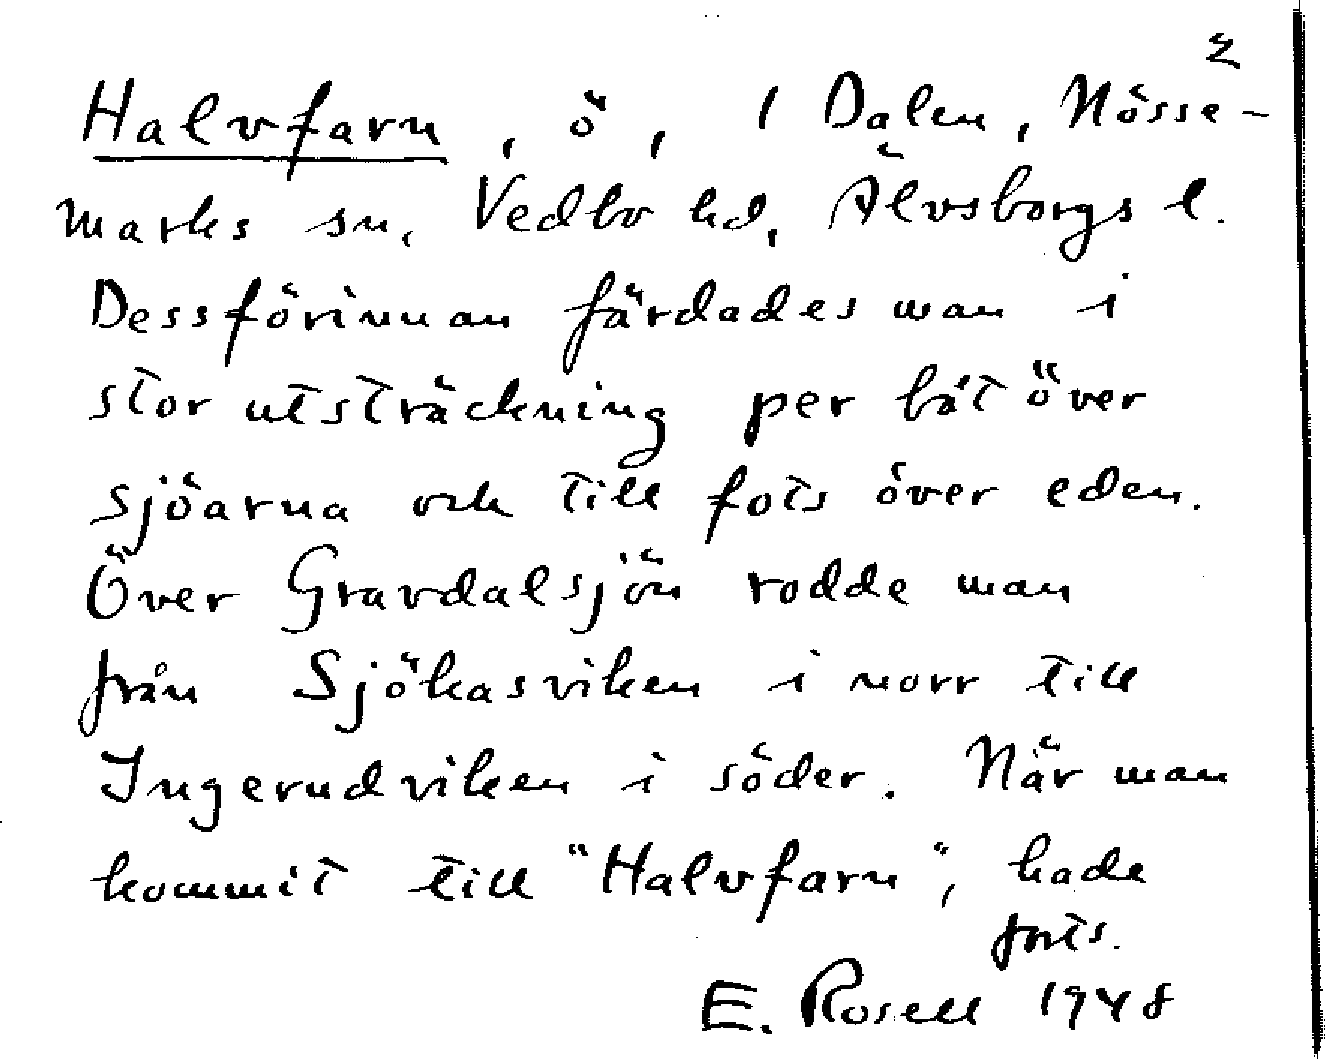 2
Halvfarn, ö, i Dalen, Nösse-
marks sn, Vedbo hd, Älvsborgs l.
Dessförinnan färdades man i
stor utsträckning per båt över
sjöarna och till fots över eden.
Över Gravdalsjön rodde man
från Sjökasviken i norr till
Ingerudviken i söder. När man
kommit till "Halvfarn", hade
forts.
E. Rosell 1948